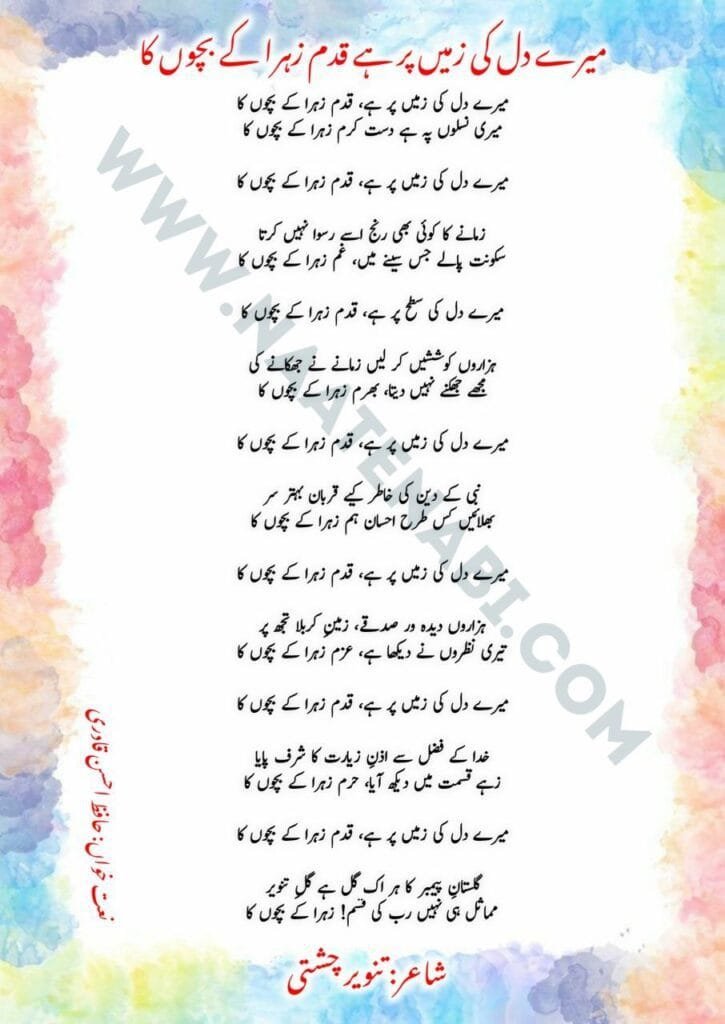 میرے دل کی زمیں پر ہے قدم زہرا کے بچوں کا
میرے دل کی زمیں پر ہے، قدم زہرا کے بچوں کا
میری نسلوں پہ ہے دست کرم زہرا کے بچوں کا
میرے دل کی زمیں پر ہے، قدم زہرا کے بچوں کا
زمانے کا کوئی بھی رنج اسے رسوا نہیں کرتا
سکونت پالے جس سینے میں، غم زہرا کے بچوں کا
میرے دل کی سطح پر ہے، قدم زہرا کے بچوں کا
ہزاروں کوششیں کر لیں زمانے نے جھکانے کی
مجھے جھکنے نہیں دیتا، بھرم زہرا کے بچوں کا
میرے دل کی زمیں پر ہے، قدم زہرا کے بچوں کا
نبی کے دین کی خاطر کیے قربان بہتر سر
بھلائیں کس طرح احسان ہم زہرا کے بچوں کا
میرے دل کی زمیں پر ہے، قدم زہرا کے بچوں کا
ہزاروں دیدہ ور صدقے، زمینِ کربلا تجھ پر
تیری نظروں نے دیکھا ہے، عزم زہرا کے بچوں کا
میرے دل کی زمیں پر ہے، قدم زہرا کے بچوں کا
خدا کے فضل سے اذنِ زیارت کا شرف پایا
زہے قسمت میں دیکھ آیا، حرم زہرا کے بچوں کا
میرے دل کی زمیں پر ہے، قدم زہرا کے بچوں کا
گلستانِ پیمبر کا ہر اک گل ہے گلِ تنویر
مماثل ہی نہیں رب کی قسم! زہرا کے بچوں کا
شاعر: تنویر چشتی
نعت خواں: حافظ احسن قادری
WWW.NAATENABI.COM